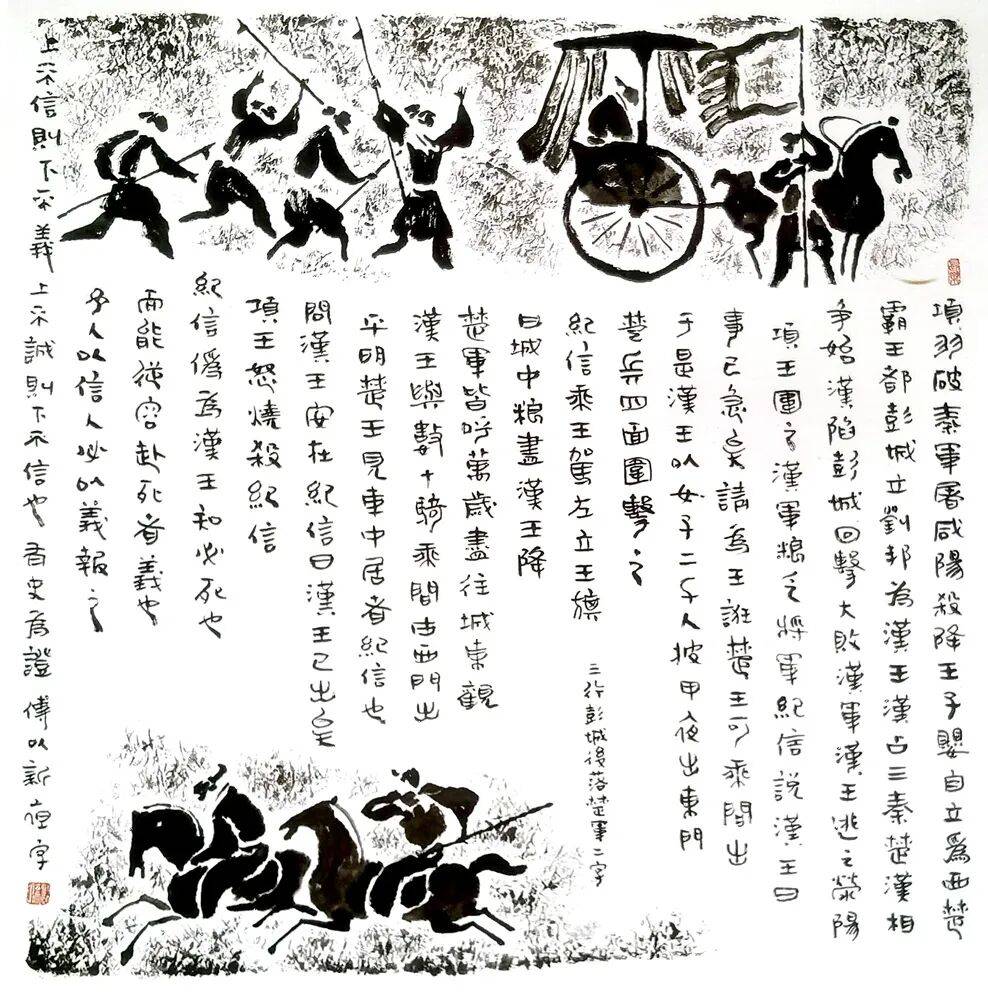 項羽破秦軍屠咸陽殺降王子嬰自立為西楚
霸王都彭城立劉邦為漢王漢占三秦楚漢相
爭始漢陷彭城回擊大敗漢軍漢王逃之滎陽
項王圍之漢軍粮乏將軍紀信説漢王曰
事已急矣請為王誑楚王可乘間出
于是漢王以女子二千人披甲夜出東門
楚兵四面圍擊之
紀信乘王駕左立王旗
曰城中粮盡漢王降
楚軍皆呼萬歲盡往城東觀
漢王與數十騎乘間由西門出
平明楚王見車中居者紀信也
問漢王安在紀信曰漢王已出矣
項王怒燒殺紀信
紀信偽為漢王和必死也
而能從容赴死者義也
予人以信人必以義報之
上不信則下不義上不誠則下不信也 有史為證 傅以新 字
三行彭城後落楚軍二字